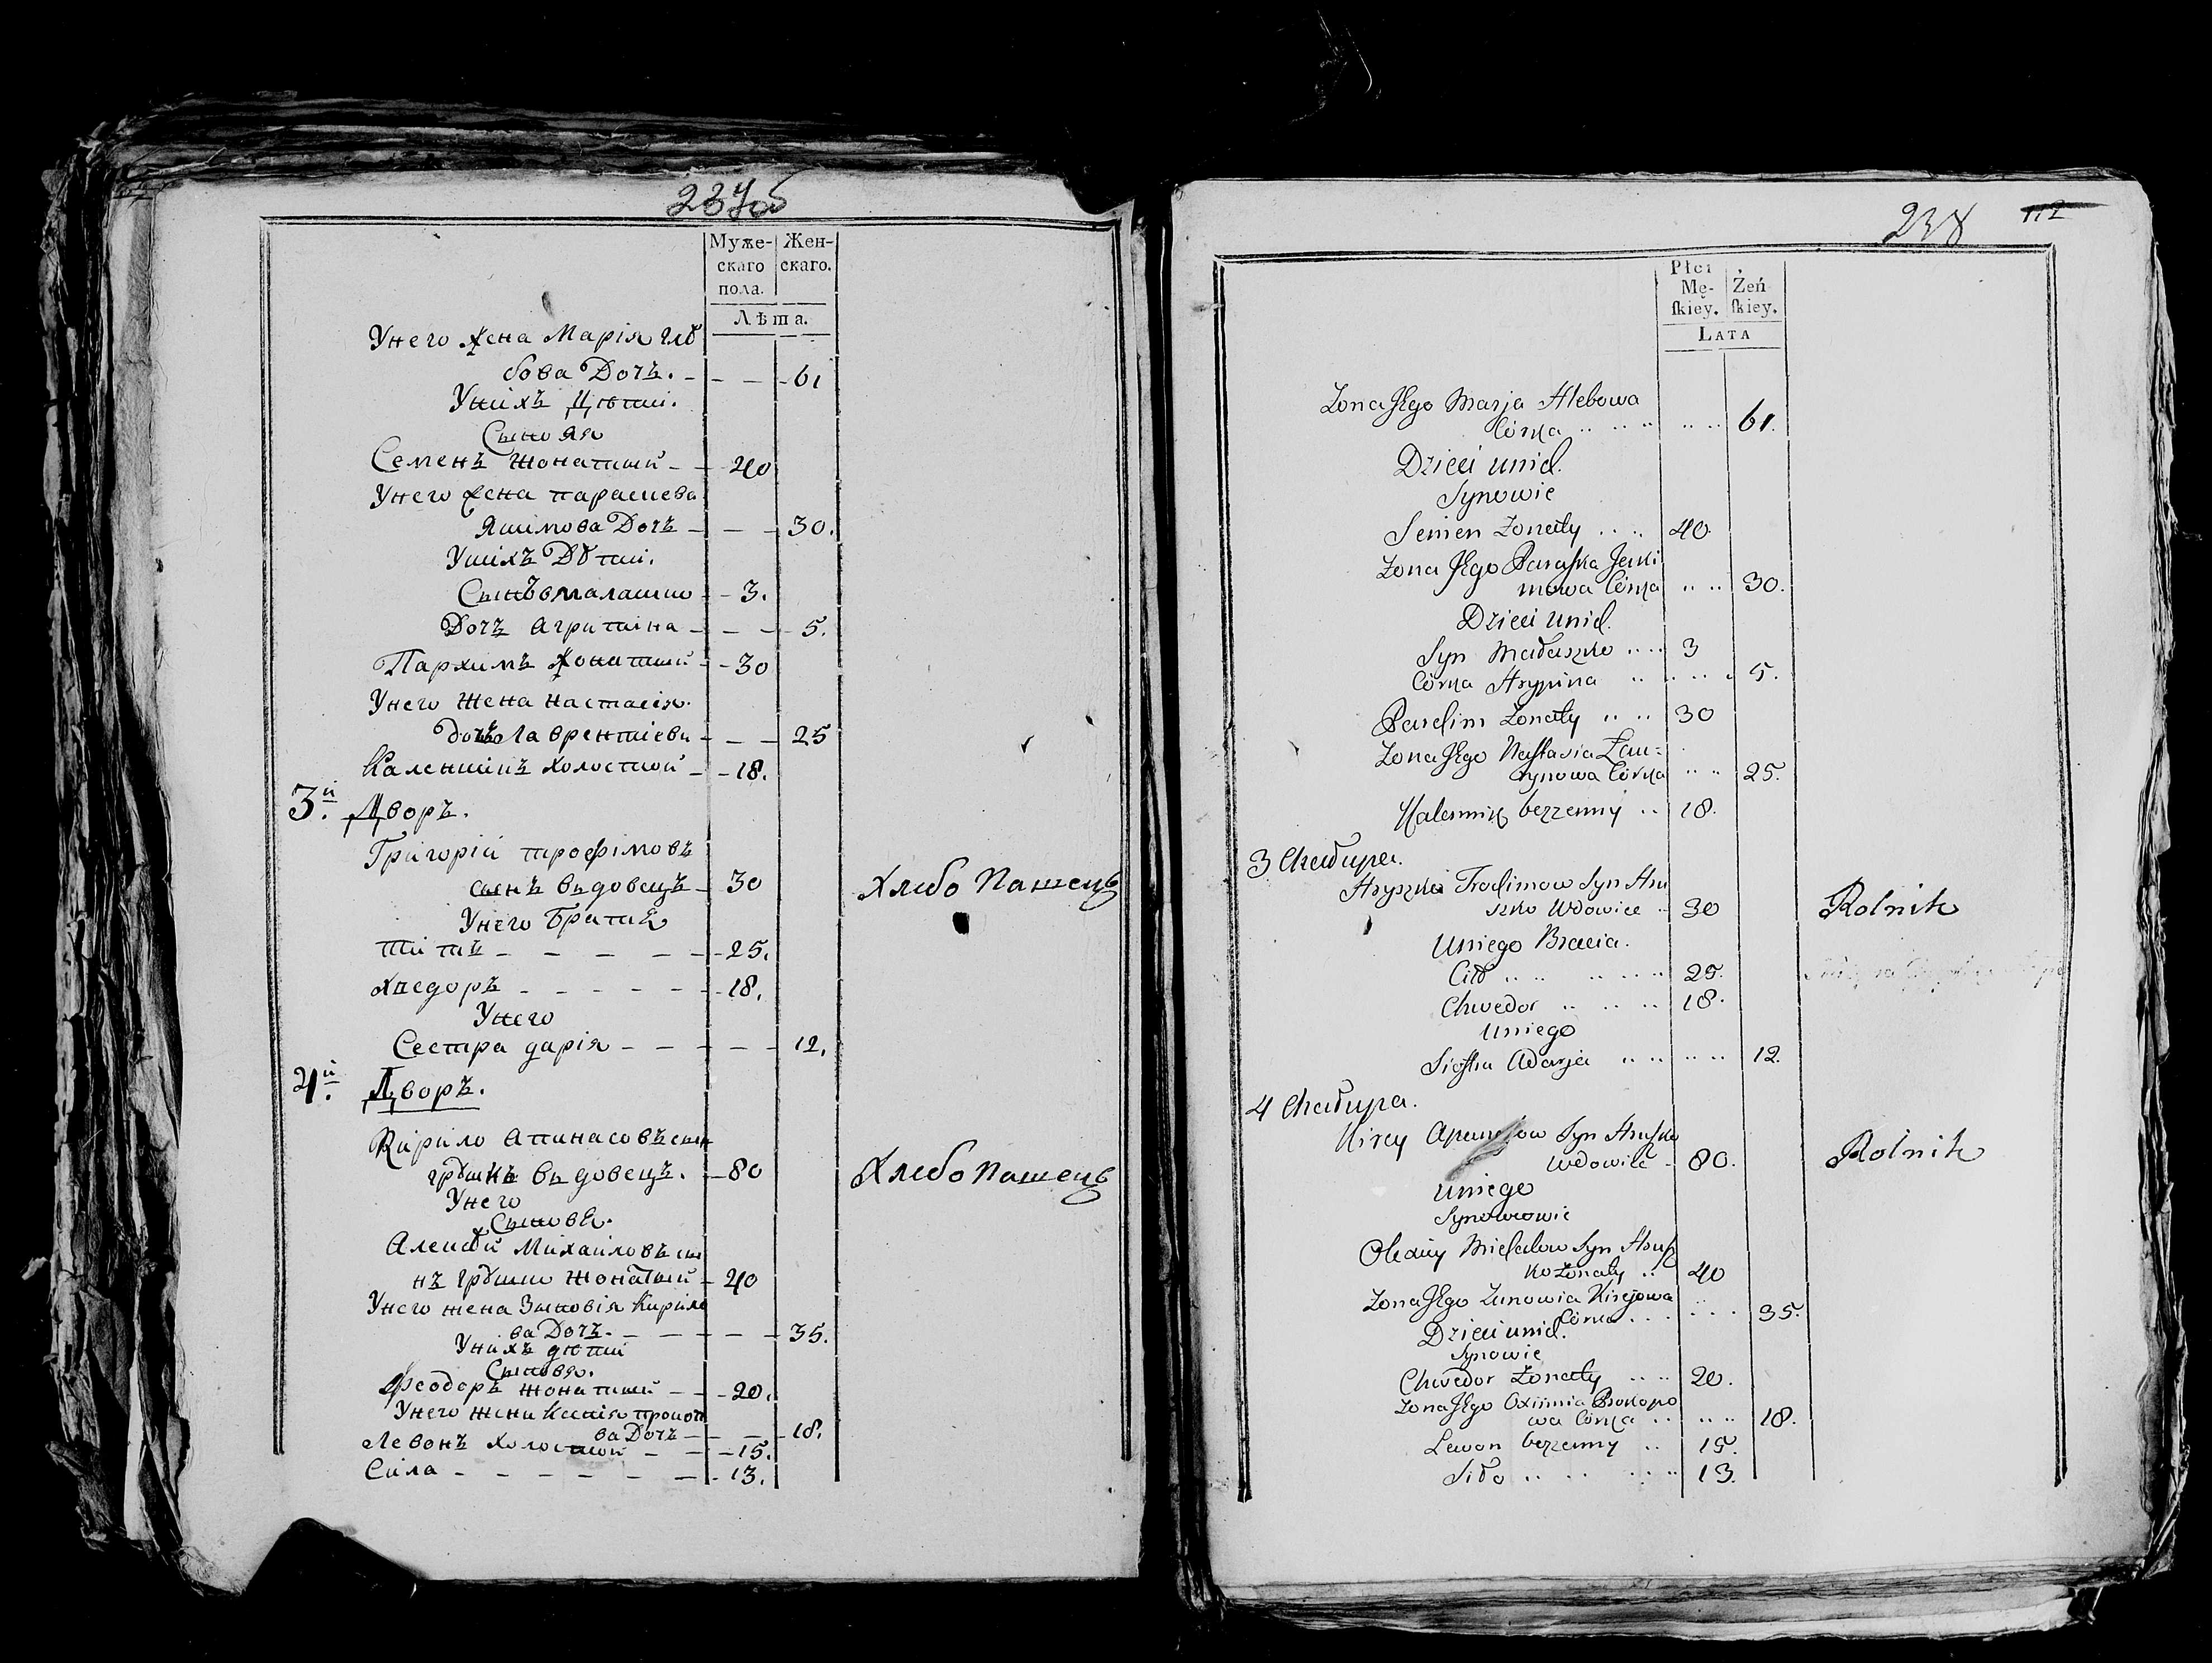 237об
Муже-
скаго
пола.
Жен-
скаго.
Лѣта.
Унего жена Марія глѣ
бова Дочъ. 61
Унихъ Дѣти.
Сыновя
Семенъ жонатый 40
Унего жена параскева
Якимова Дочъ 30.
Унихъ Дѣти.
Сынъ 3.
Дочъ Агрипина 5.
Пархимъ жонатый 30
Унего жена настасія
дочь Лаврентіева 25
Каленикъ холостой 18.
3й. Дворъ.
Григорій трофімовъ
сынъ вдовецъ 30 Хлебо Пашець
Унего Братия
титъ 25.
хведоръ 18.
Унего
Сестра дарія 12.
4й. Дворъ.
Кирило Апанасовъ сын
вдовецъ. 80 Хлебо Пашець
Унего
Алексѣй Михайловъ сы
нъ жонатый 40
Унего жена Зыновія Кирило
ва Дочъ. 35.
Унихъ дѣти
Сыновя.
Феодоръ жонатый 20.
Унего жена Ксенія прокоп
ва Дочъ 18.
Левонъ холостой 15.
Сила 13.
238 112
Płci
Mę-
ſkiey.
Żeń
ſkiey.
LATA
Zona Jego Marja Hlebowa
Córka 61.
Dzieci unich.
Synowie
Semen Zonaty 40.
Zona Jego Paraska Jeki
mowa Córka 30.
Dzieci unich.
Syn Małaszko 3
Córka Hrypina 5.
Parchim Zonaty 30
Zona Jego Nastasia Ław=
rynowa Córka 25.
Kalennik bezzenny 18.
3 Chałupa.
Hryszko Trochimow Syn Hru
szko Wdowiec 30 Rolnik
Uniego Bracia.
Cit 25.
Chwedor 18.
Uniego
Siostra Adarja 12.
4 Chałupa.
Kirey Apanasow Syn Hruszko
Wdowiec 80. Rolnik
Uniego
Olexiey Michałow Syn Hrusz
ko Zonaty 40
Zona Jego Zunowia Kirejowa
Córka 35.
Dzieci unich.
Synowie
Chwedor Zonaty 20.
Zona Jego Oxiimia Prokopo
wa Córka 18.
Lewon bezzenny 15.
Siła 13.